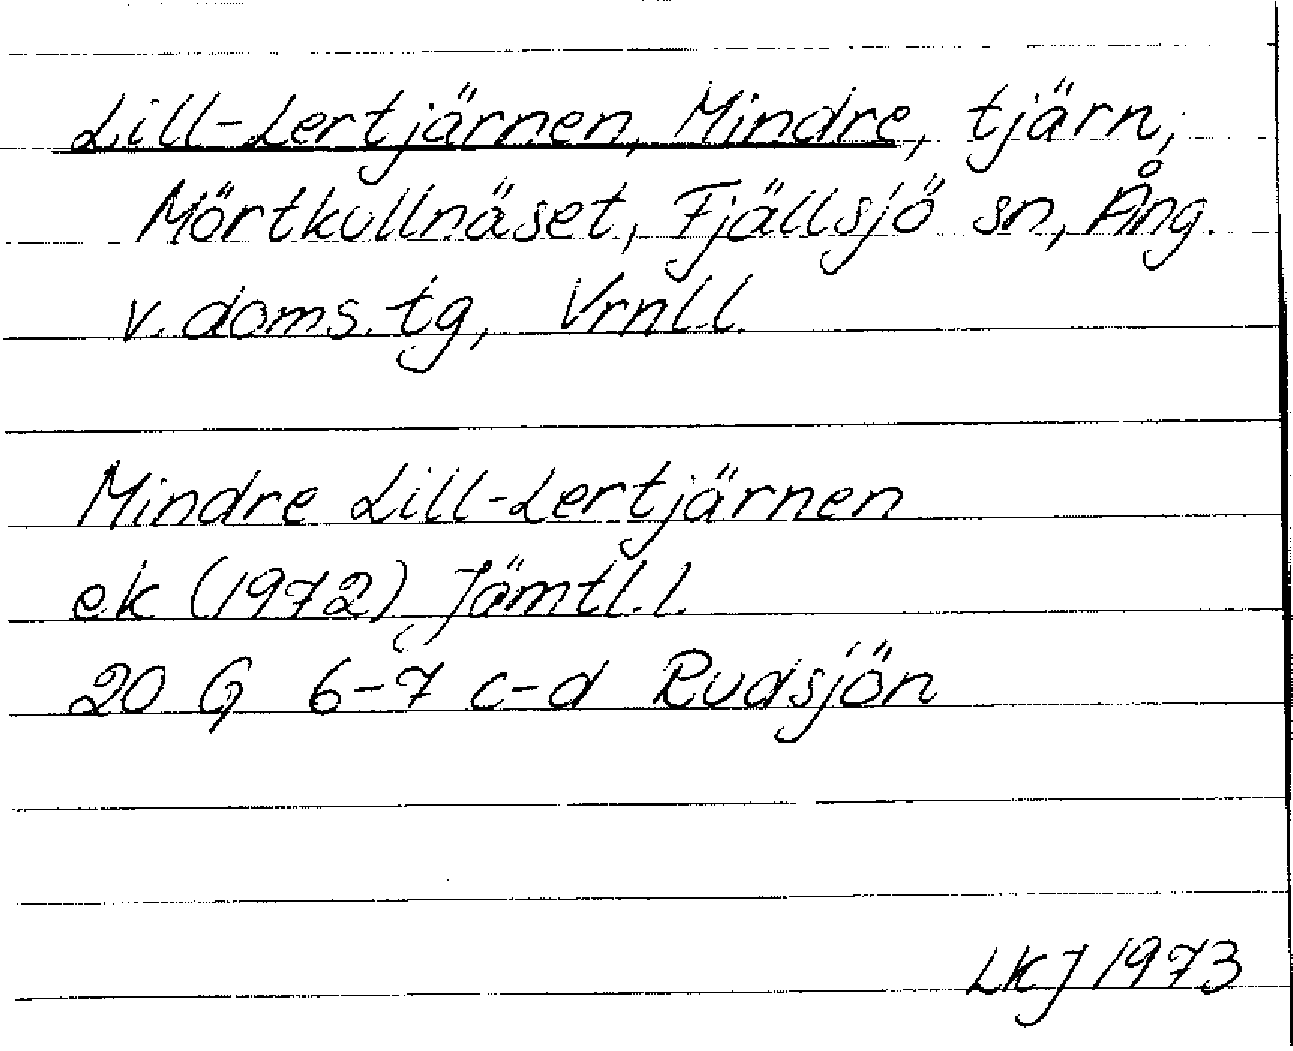 Lill-Lertjärnen, Mindre, tjärn,
Mörtkullnäset, Fjällsjö sn, Ång.
v. doms. tg, Vrnl.l.
Mindre Lill-Lertjärnen
ek (1972) Jämtl.l.
20 G 6-7 c-d Rudsjön
LKJ 1973